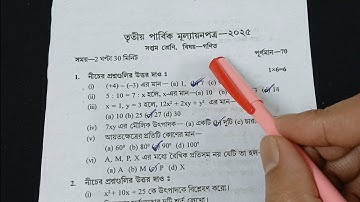 তৃতীয় পার্বিক মূল্যায়নপত্র—২০২৫
সপ্তম শ্রেণি, বিষয়—গণিত
সময়—2 ঘণ্টা 30 মিনিট পূর্ণমান—70
1. নীচের প্রশ্নগুলির উত্তর দাও : 1×6=6
(i) (+4) – (–3) এর মান—(a) 1,
(ii) 5 : 10 = 7 : x হলে, x-এর মান—(a) 14
(iii) x = 1, y = 3 হলে, 12x² + 2xy + y² এর মান—
(a) 10 (b) 25 (c) 27 (d) 30
(iv) 7xy এর মৌলিক উৎপাদক—(a) একটি (b) দুটি (c) চারটি
(v) আয়তক্ষেত্রের প্রতিটি কোণের মান—
(a) 60° (b) 80° (c) 90° (d)
(vi) A, M, P, X এর মধ্যে রৈখিক প্রতিসম নয় যেটি তা হল—
(a) A (b) M (c) P (d) X
2. নীচের প্রশ্নগুলির উত্তর দাও :
(i) x² + 10x + 25 কে উৎপাদকে বিশ্লেষণ করো।